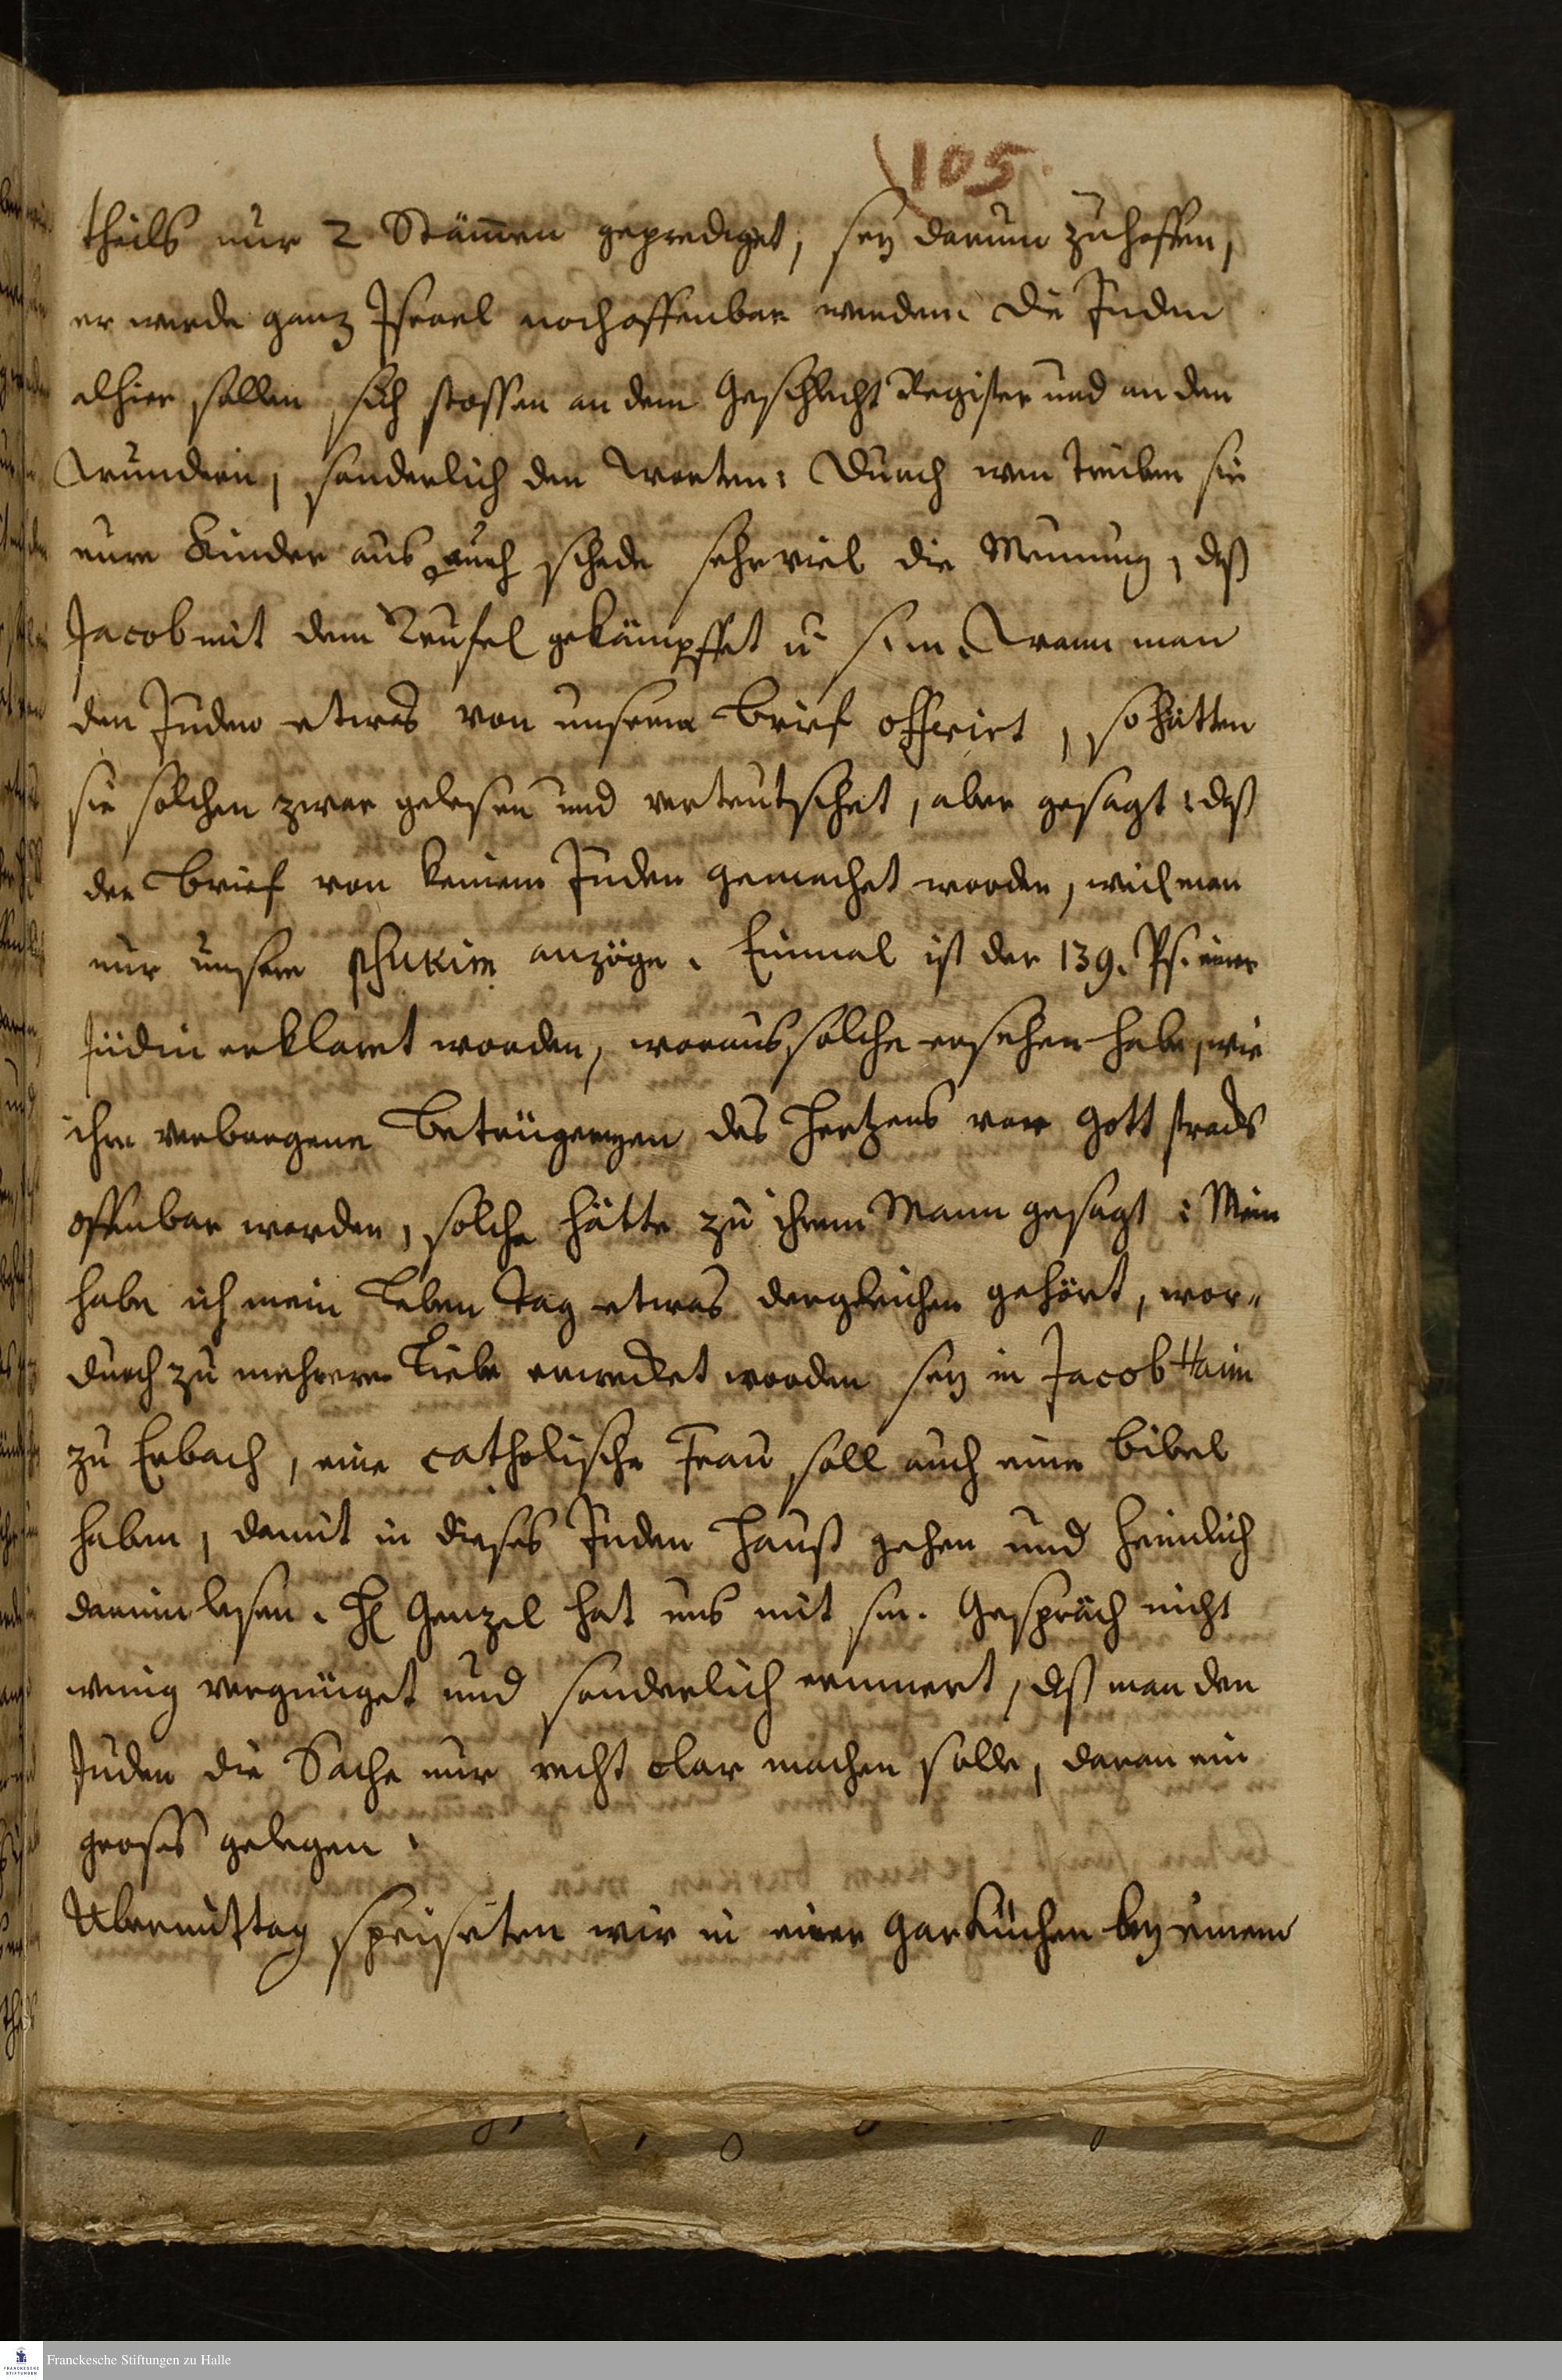 105.
theils nur 2 Stämen geprediget, sey darum zuhoffen,
er werde ganz Israel noch offenbar werden. Die Juden
alhier sollen sich stossen an dem Geschlecht Register und an den
Wundern, sonderlich den Worten: Durch wen treiben sie
eure Kinder aus, auch schade sehr viel die Meinung, daß
Jacob mit dem Teufel gekämpffet u. Wann man
den Juden etwas von unserm Brief offerirt, so hätten
sie solchen zwar gelesen und verteutschet, aber gesagt: daß
der Brief von keinem Juden gemachet worden, weil man
nur unsere Psukim anzöge. Einmal ist der 139. Ps. einer
Jüdin erkläret worden, woraus solche ersehen habe, wie
ihre verborgene Betrügereyen des Hertzens vor Gott stracks
offenbar werden, solche hätte zu ihrem Mann gesagt: Mein
habe ich mein Leben Tag etwas dergleichen gehört, wor-
durch zu mehrerer Liebe erwecket worden sey in Jacob Haim
zu Erbach, eine catholische Frau soll auch eine Bibel
haben, damit in dieses Juden Hauß gehen und heimlich
darinn lesen. H Genzel hat uns mit sn. Gespräch nicht
wenig vergnüget und sonderlich erinnert, daß man den
Juden die Sache nur recht clar machen solle, daran ein
grosses gelegen.
Ubermittag speiseten wir in einer Garküchen bey einem
Franckesche Stiftungen zu Halle